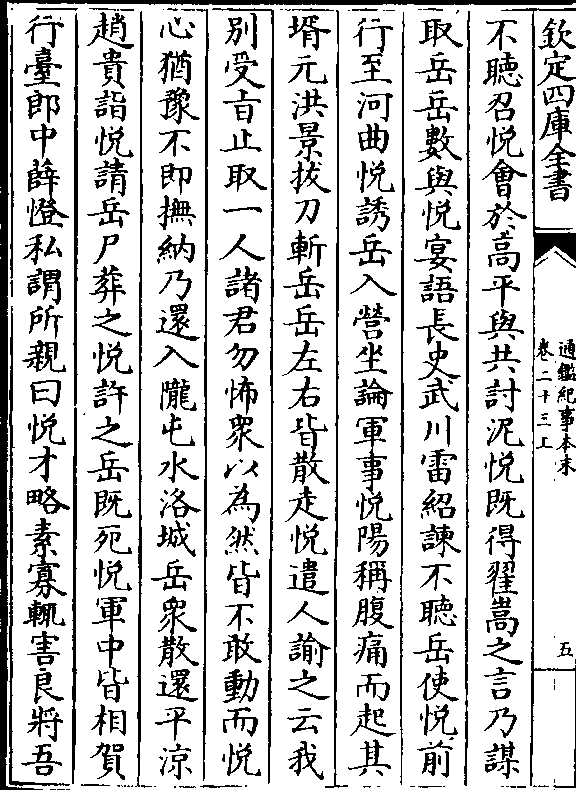 欽定四庫全書
通鑑紀事本末
卷二十三上
五
不聽召悅會於高平與共討泥悅既得翟嵩之言乃謀
取岳岳數與悅宴語長史武川雷紹諫不聽岳使悅前
行至河曲悅誘岳入營坐論軍事悅陽稱腹痛而起其
壻元洪景拔刀斬岳岳左右皆散走悅遣人諭之云我
別受旨止取一人諸君勿怖衆以為然皆不敢動而悅
心猶豫不即撫納乃還入隴屯水洛城岳衆散還平涼
趙貴詣悅請岳尸葬之悅許之岳既死悅軍中皆相賀
行臺郎中薛憕私謂所親曰悅才略素寡輒害良將吾